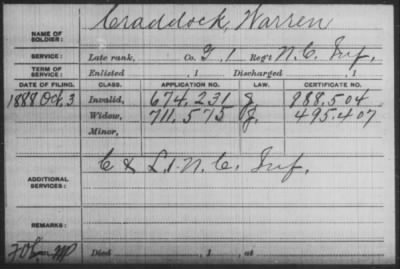 Craddock, Warren
NAME OF SOLDIER:
SERVICE: Late rank, Co. G, 1 Reg't N.C. Inf.
TERM OF SERVICE: Enlisted , 1 Discharged , 1
DATE OF FILING. CLASS. APPLICATION NO. LAW. CERTIFICATE NO.
1888 Oct. 3 Invalid, 674.231 g 988.504
Widow, 711.575 g 495.407
Minor,
C & L. 1. N.C. Inf.
ADDITIONAL SERVICES:
REMARKS:
Died , 1 , at